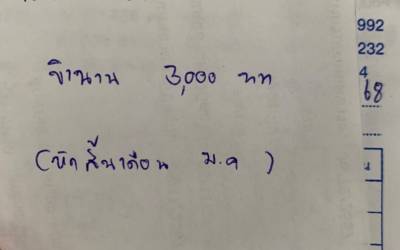 จำนวน 3,000 บาท
(หักสิ้นเดือน ม.ค )
992
232
4
68
น